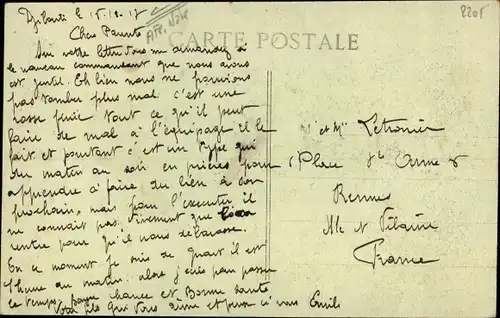 Djibouti le 15.12.17
Chers Parents
CARTE POSTALE
2205
Sur votre lettre vous me demandez si
le nouveau commandant que nous avons
est gentil. Eh bien nous ne pouvions
pas tomber plus mal c'est une
rosse finie tout ce qu'il peut
faire de mal à l'équipage il le
fait et pourtant c'est un type qui
du matin au soir en prières pour
apprendre à faire du bien à son
prochain, mais pour l'exécuter il
ne connait pas. Vivement que
rentre pour qu'il nous débarasse.
En ce moment je suis de quart il est
heure du matin. alors j'écris pour passer
le temps. bonne chance et Bonne santé
Votre fils qui vous aime et pense à vous Emile
et Mme Letronnier
1 Place Ste Anne
Rennes
Ille et Vilaine
France